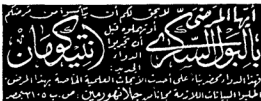 أيها المرضى
بالبول السكرى
لا يحق لكم أن تيأسوا من مرضكم
أو تهملوه قبل
أن تجربوا
الدواء
أنتيكومان
فهذا الدواء محضر بناء على أحدث الأبحاث العلمية الخاصة بهذا المرض
اطلبوا البيانات اللازمة مجانا من جلانهورمين. ص.ب ٢١٠٠ مصر